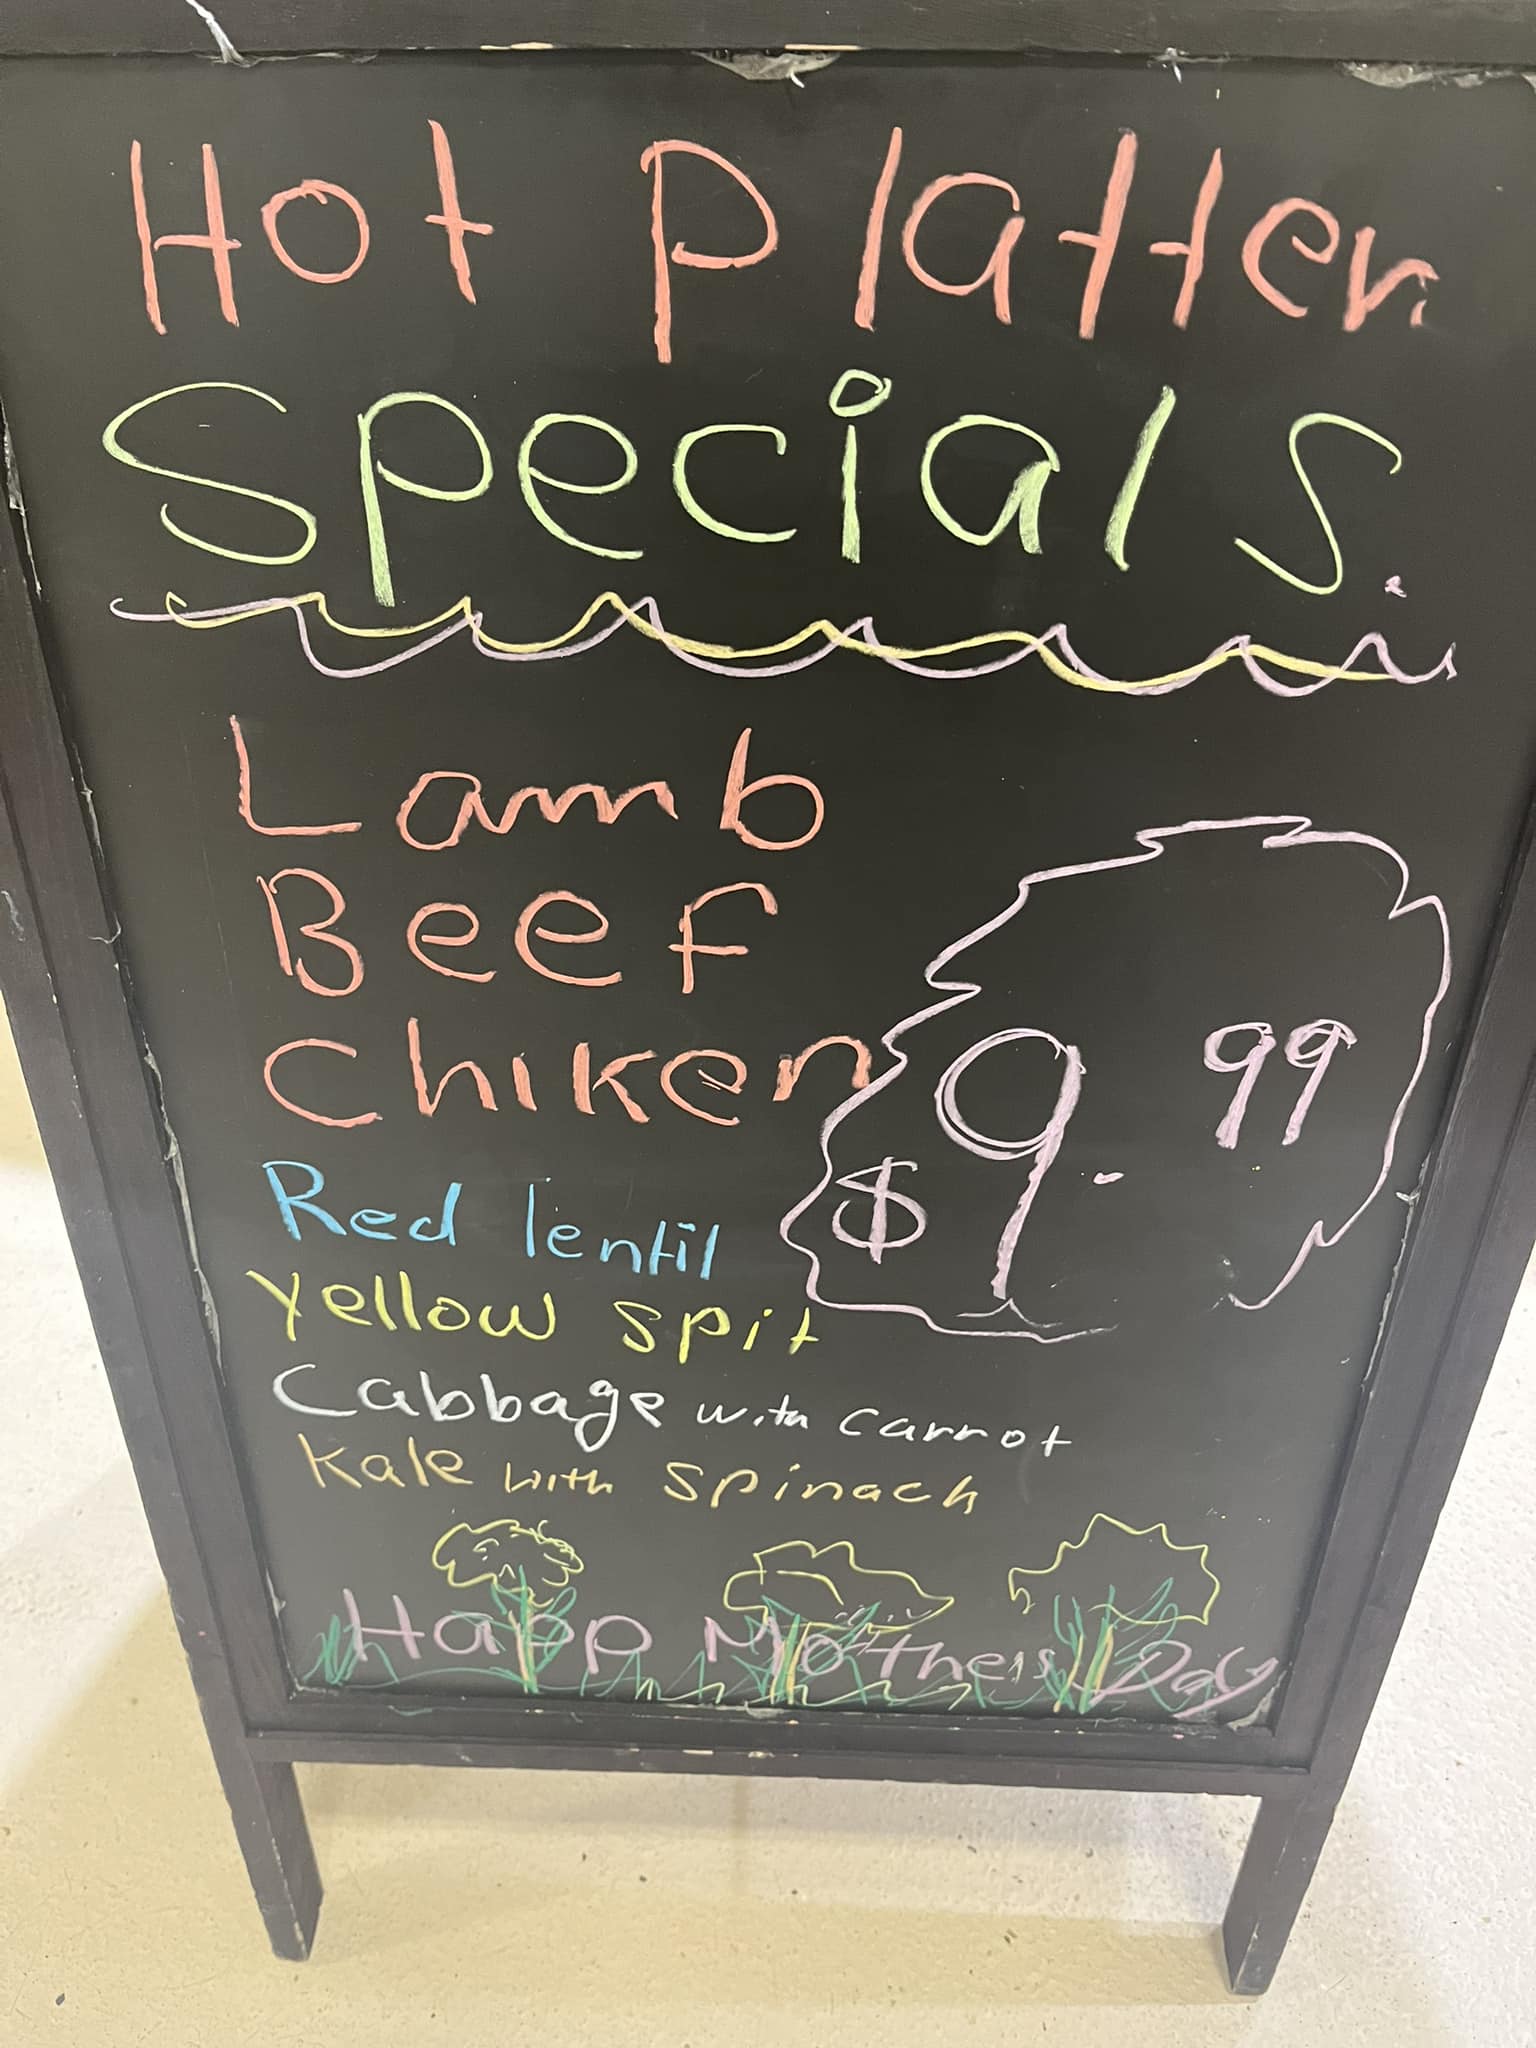 Hot Platter
Specials.
Lamb
Beef
Chiken
$9.99
Red lentil
Yellow spit
Cabbage with carrot
Kale with spinach
Happ Mothers Day